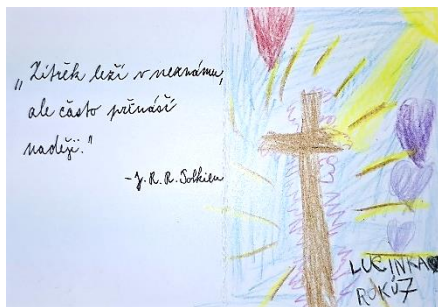 „Zítřek leží v neznámu,
ale často přináší
naději."
-J. R. R. Tolkien
LUCINKA
ROKŮ 7